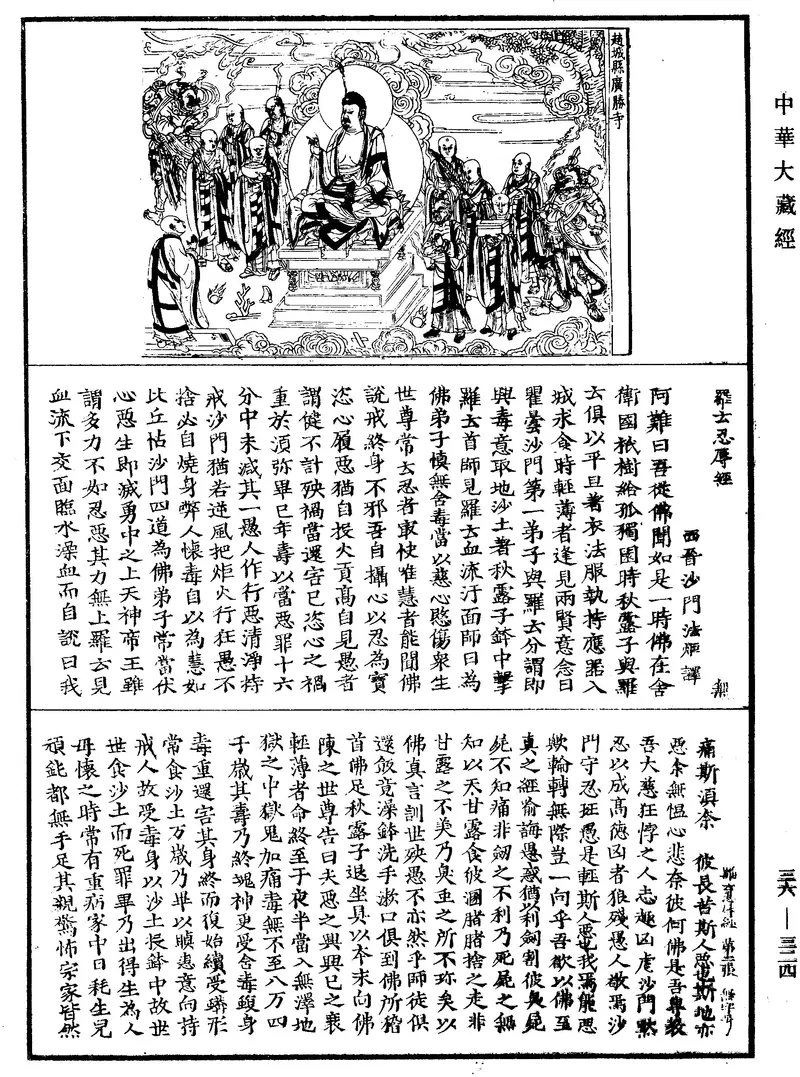 中華大藏經
趙城縣廣勝寺
羅云忍辱經
西晉沙門法炬譯
阿難曰吾從佛聞如是一時佛在舍
衛國祇樹給孤獨園時秋露子與羅
云俱以平旦著衣法服執持應器入
城求食時輕薄者逢見兩賢意念曰
瞿曇沙門第一弟子與羅云分謂即
興毒意取地沙土著秋露子鉢中擊
羅云首師見羅云血流汙面師曰為
佛弟子慎無含毒當以慈心愍傷衆生
世尊常云忍者寂快唯慧者能聞佛
說戒終身不邪吾自攝心以忍為寶
恣心履惡猶自投火貢高自見愚者
謂健不計殃禍當還害已恣心之禍
重於須弥畢已年壽以當惡罪十六
分中未減其一愚人作行惡清淨持
戒沙門猶若逆風把炬火行狂愚不
捨必自燒身弊人懷毒自以為慧如
比丘怙沙門四道為佛弟子常當伏
心惡生即滅勇中之上天神帝王雖
謂多力不如忍惡其力無上羅云見
血流下交面臨水澡血而自說曰我
痛斯須奈彼長苦斯人惡也斯地亦
惡余無愠心悲奈彼何佛是吾尊教
吾大慈狂悖之人志趣凶虐沙門默
忍以成高德凶者狼殘愚人敬焉沙
門守忍狂愚是輕斯人惡也我焉能忍
欺輪轉無際豈一向乎吾欲以佛至
真之經喻誨愚惑猶以利劒割彼臭屍
屍不知痛非劒之不利乃死屍之無
知以天甘露食彼溷賭賭捨之走非
甘露之不美乃臭虫之所不珎矣以
佛真言訓世殃愚不亦然乎師徒俱
還飯竟澡鉢洗手漱口俱到佛所稽
首佛足秋露子退坐具以本末向佛
陳之世尊告曰夫惡之興興已之衰
輕薄者命終至于夜半當入無澤地
獄之中獄鬼加痛毒無不至八万四
千歲其壽乃終塊神更受含毒蝮身
毒重還害其身終而復始續受蝮形
常食沙土万歲乃畢以瞋恚意向持
戒人故受毒身以沙土投鉢中故世
世食沙土而死罪畢乃出得生為人
母懷之時常有重病家中日耗生兒
頑鈍都無手足其親驚怖宗家皆然
三六—三二四